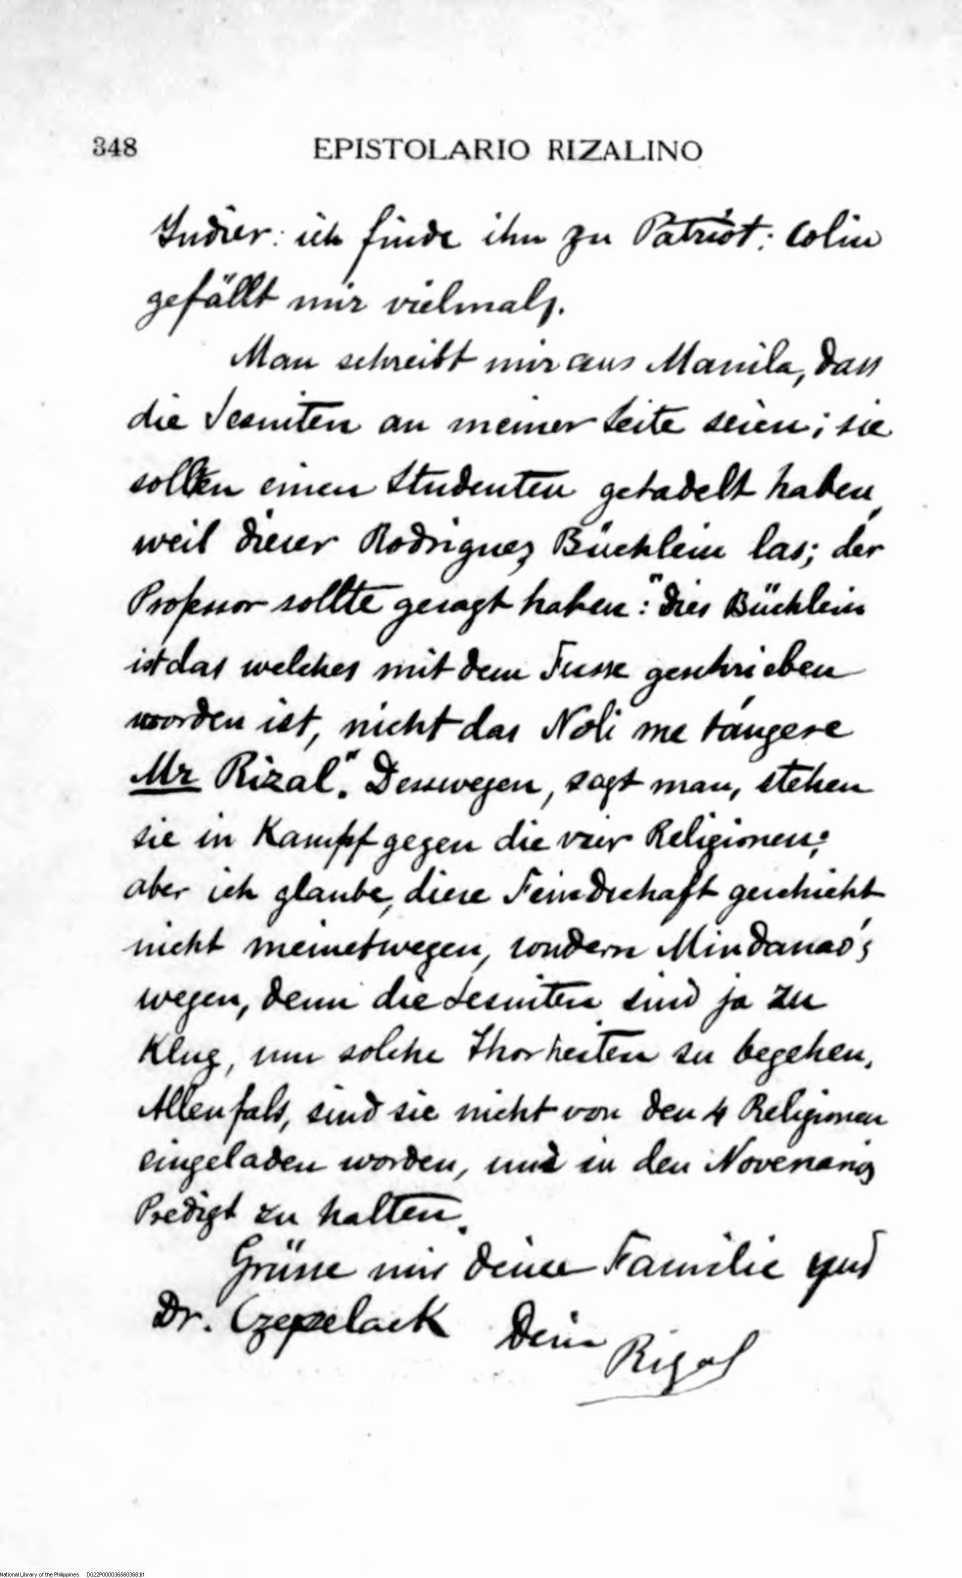 348 EPISTOLARIO RIZALINO
Indier: ich finde ihn zu Patriot: Colin
gefällt mir vielmals.
Man schreibt mir aus Manila, dass
die Jesuiten an meiner Seite seien; sie
sollen einen Studenten getadelt haben,
weil dieser Rodriguez Büchlein las; der
Professor sollte gesagt haben: "dies Büchlein
ist das welches mit dem Fusse geschrieben
worden ist, nicht das Noli me tángere
Mr Rizal". Desswegen, sagt man, stehen
sie in Kampf gegen die vier Religionen;
aber ich glaube, diese Feindschaft geschieht
nicht meinetwegen, sondern Mindanao's
wegen, denn die Jesuiten sind ja zu
klug, um solche Thorheiten zu begehen.
Allenfals, sind sie nicht von den 4 Religionen
eingeladen worden, um in den Novenarios
Predigt zu halten.
Grüsse mir deine Familie und
Dr. Czepelack Dein
Rizal
National Library of the Philippines